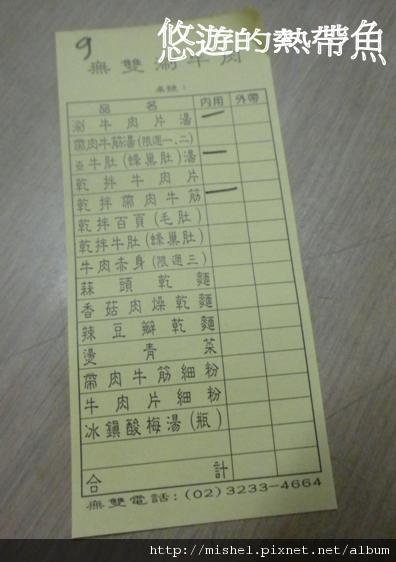 悠遊的熱帶魚
9
無雙涮牛肉
桌號：
品名 內用 外帶
涮牛肉片湯
帶肉牛筋湯(限週一、二)
牛肚(蜂巢肚)湯
乾拌牛肉片
乾拌帶肉牛筋
乾拌百頁(毛肚)
乾拌牛肚(蜂巢肚)
牛肉赤身(限週三)
蒜頭乾麵
香菇肉燥乾麵
辣豆瓣乾麵
燙青菜
帶肉牛筋細粉
牛肉片細粉
冰鎮酸梅湯(瓶)
合計
無雙電話:(02)3233-4664
http://mishel.pixnet.net/album